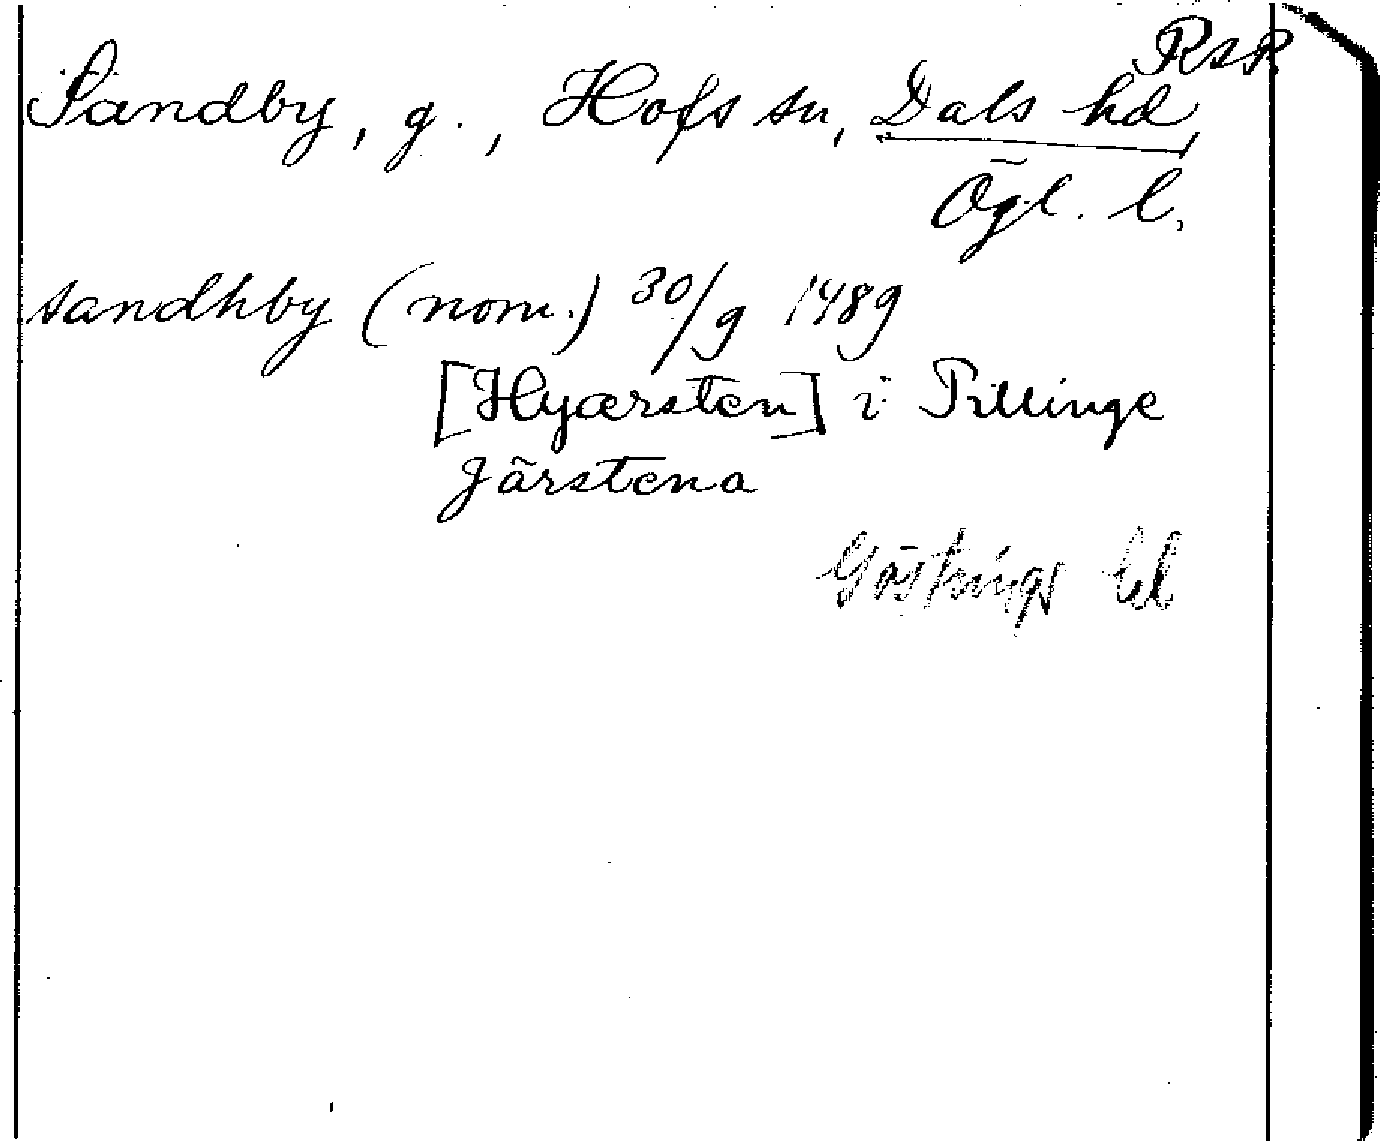 RsR
Sandby, g., Hofs sn, Dals hd,
Ögl. l.
sandhby (nom.) 30/9 1489
[Hyærsten] i Pillinge
Järstena
Göstrings hd